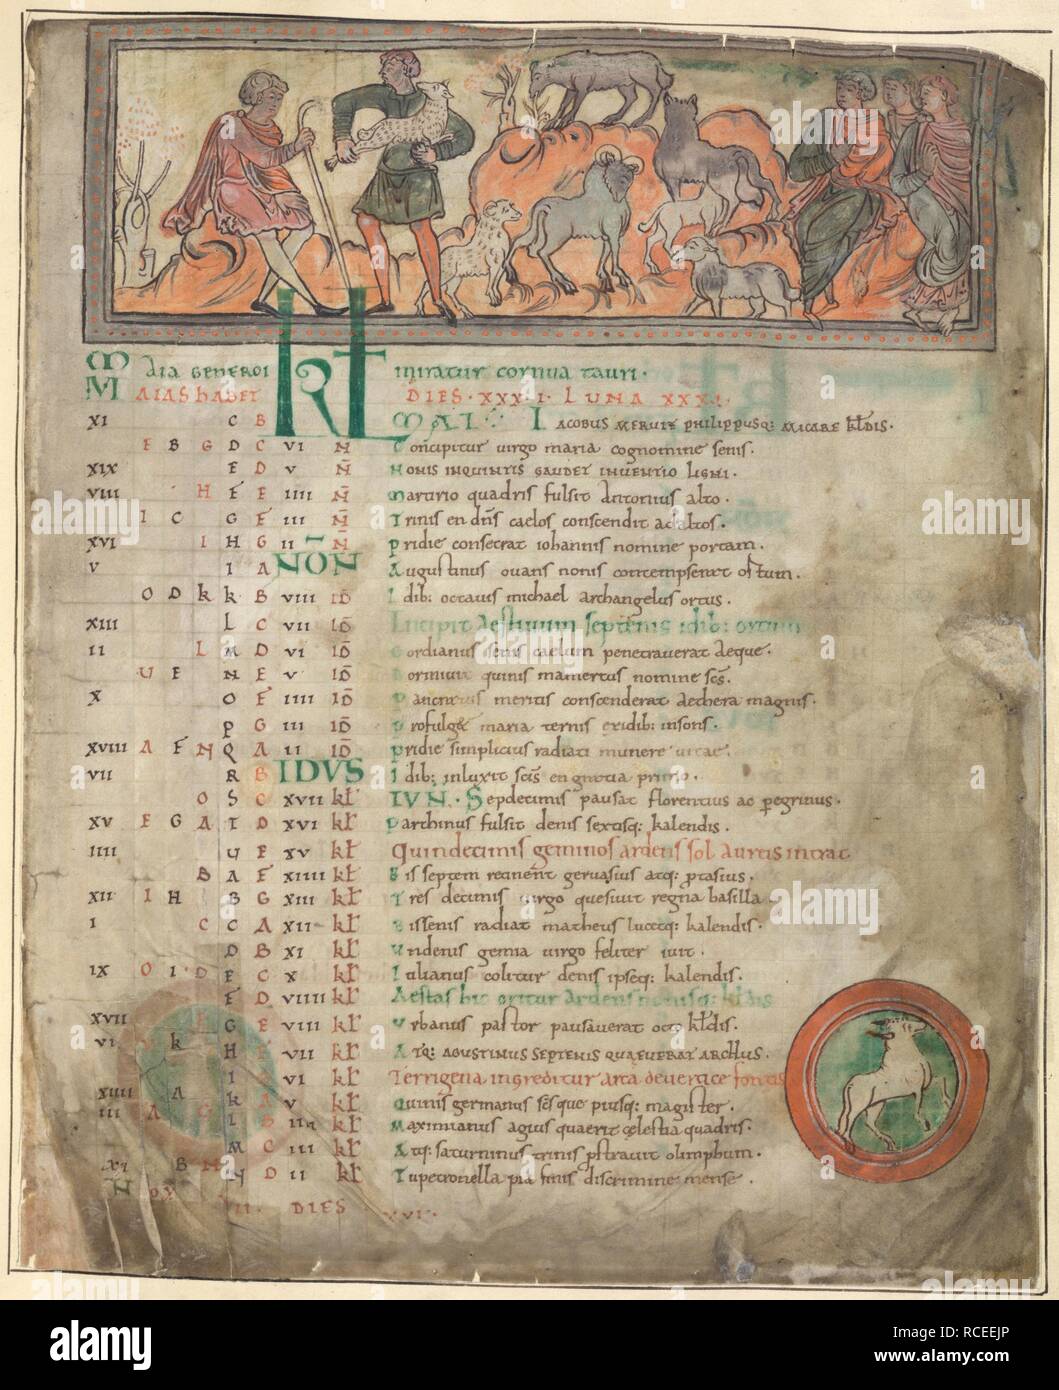 Maia generoi KL miratur cornua tauri.
Maias habet DIES · XXX · I · LUNA XXX ·
XI C B MAI I acobus meruit philippusq; micare kl̄dis.
E B G D C VI N̄ Concipitur virgo maria cognomine senis.
XIX E D V N̄ Nonis inquintis gaudet inventio ligni.
VIII H F E IIII N̄ Martirio quadris fulsit antonius alto.
I C G F III N̄ Trinis en dn̄s caelos conscendit ad altos.
XVI I H G II N̄ Pridie consecrat iohannis nomine portam.
V I A NŌN Augustinus ovans nonis contempserat ostum.
O D K K B VIII ID̄ Idib: octavis michael archangelus ortus.
XIII L C VII ID̄ Incipit aestivum septenis idib: ortum
II L M D VI ID̄ Gordianus senis caelum penetraverat aeque.
U E N E V ID̄ Dormivit quinis mamertus nomine sc̄s.
X O F IIII ID̄ Pancratius meritis conscenderat aethera magnis.
P G III ID̄ Profulget maria ternis exidib: insons.
XVIII A F N Q A II ID̄ Pridie simplicius radiati munere vitae.
VII R B IDVS Idib: inluxit sc̄s en gnotia primo.
O S C XVII kl̄ IVN · Septdecimis pausat florentius ac peregrinus.
XV E G A T D XVI kl̄ Parthinus fulsit denis sextisq; kalendis.
IIII U E XV kl̄ Quindecimis geminos ardens sol aureus intrat
B A F XIIII kl̄ Bis septem retinent gervasius atq; protasius.
XII I H B G XIII kl̄ Tres decimis virgo quesivit regna basilla
I C C A XII kl̄ Bissenis radiat matheus lucetq; kalendis.
D B XI kl̄ Undenis gemma virgo feliter ivit.
IX O I D E C X kl̄ Iulianus colitur denis ipseq; kalendis.
F D VIIII kl̄ Aestas hic oritur ardens nonisq; kl̄dis
XVII G E VIII kl̄ Urbanus pastor pausaverat octo kl̄dis.
VI K H F VII kl̄ Atq; agustinus septenis quaeverat archus.
I VI kl̄ Terrigena ingreditur arta devertice fontis
XIIII A K A V kl̄ Quinis germanus sesque piusq; magister.
III A G L B IIII kl̄ Maximianus agius quaerit caelestia quadris.
M C III kl̄ Atq; saturninus trinis prostravit olimphum.
XI B N D II kl̄ Tu petronella pia finis discrimine mense.
N DIES XVI
alamy
alamy
Image ID: RCEEJP
www.alamy.com